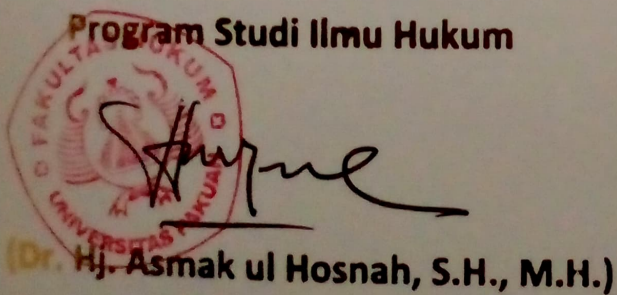 Program Studi Ilmu Hukum
FAKULTAS HUKUM
UNIVERSITAS PAKUAN
(Dr. Hj. Asmak ul Hosnah, S.H., M.H.)